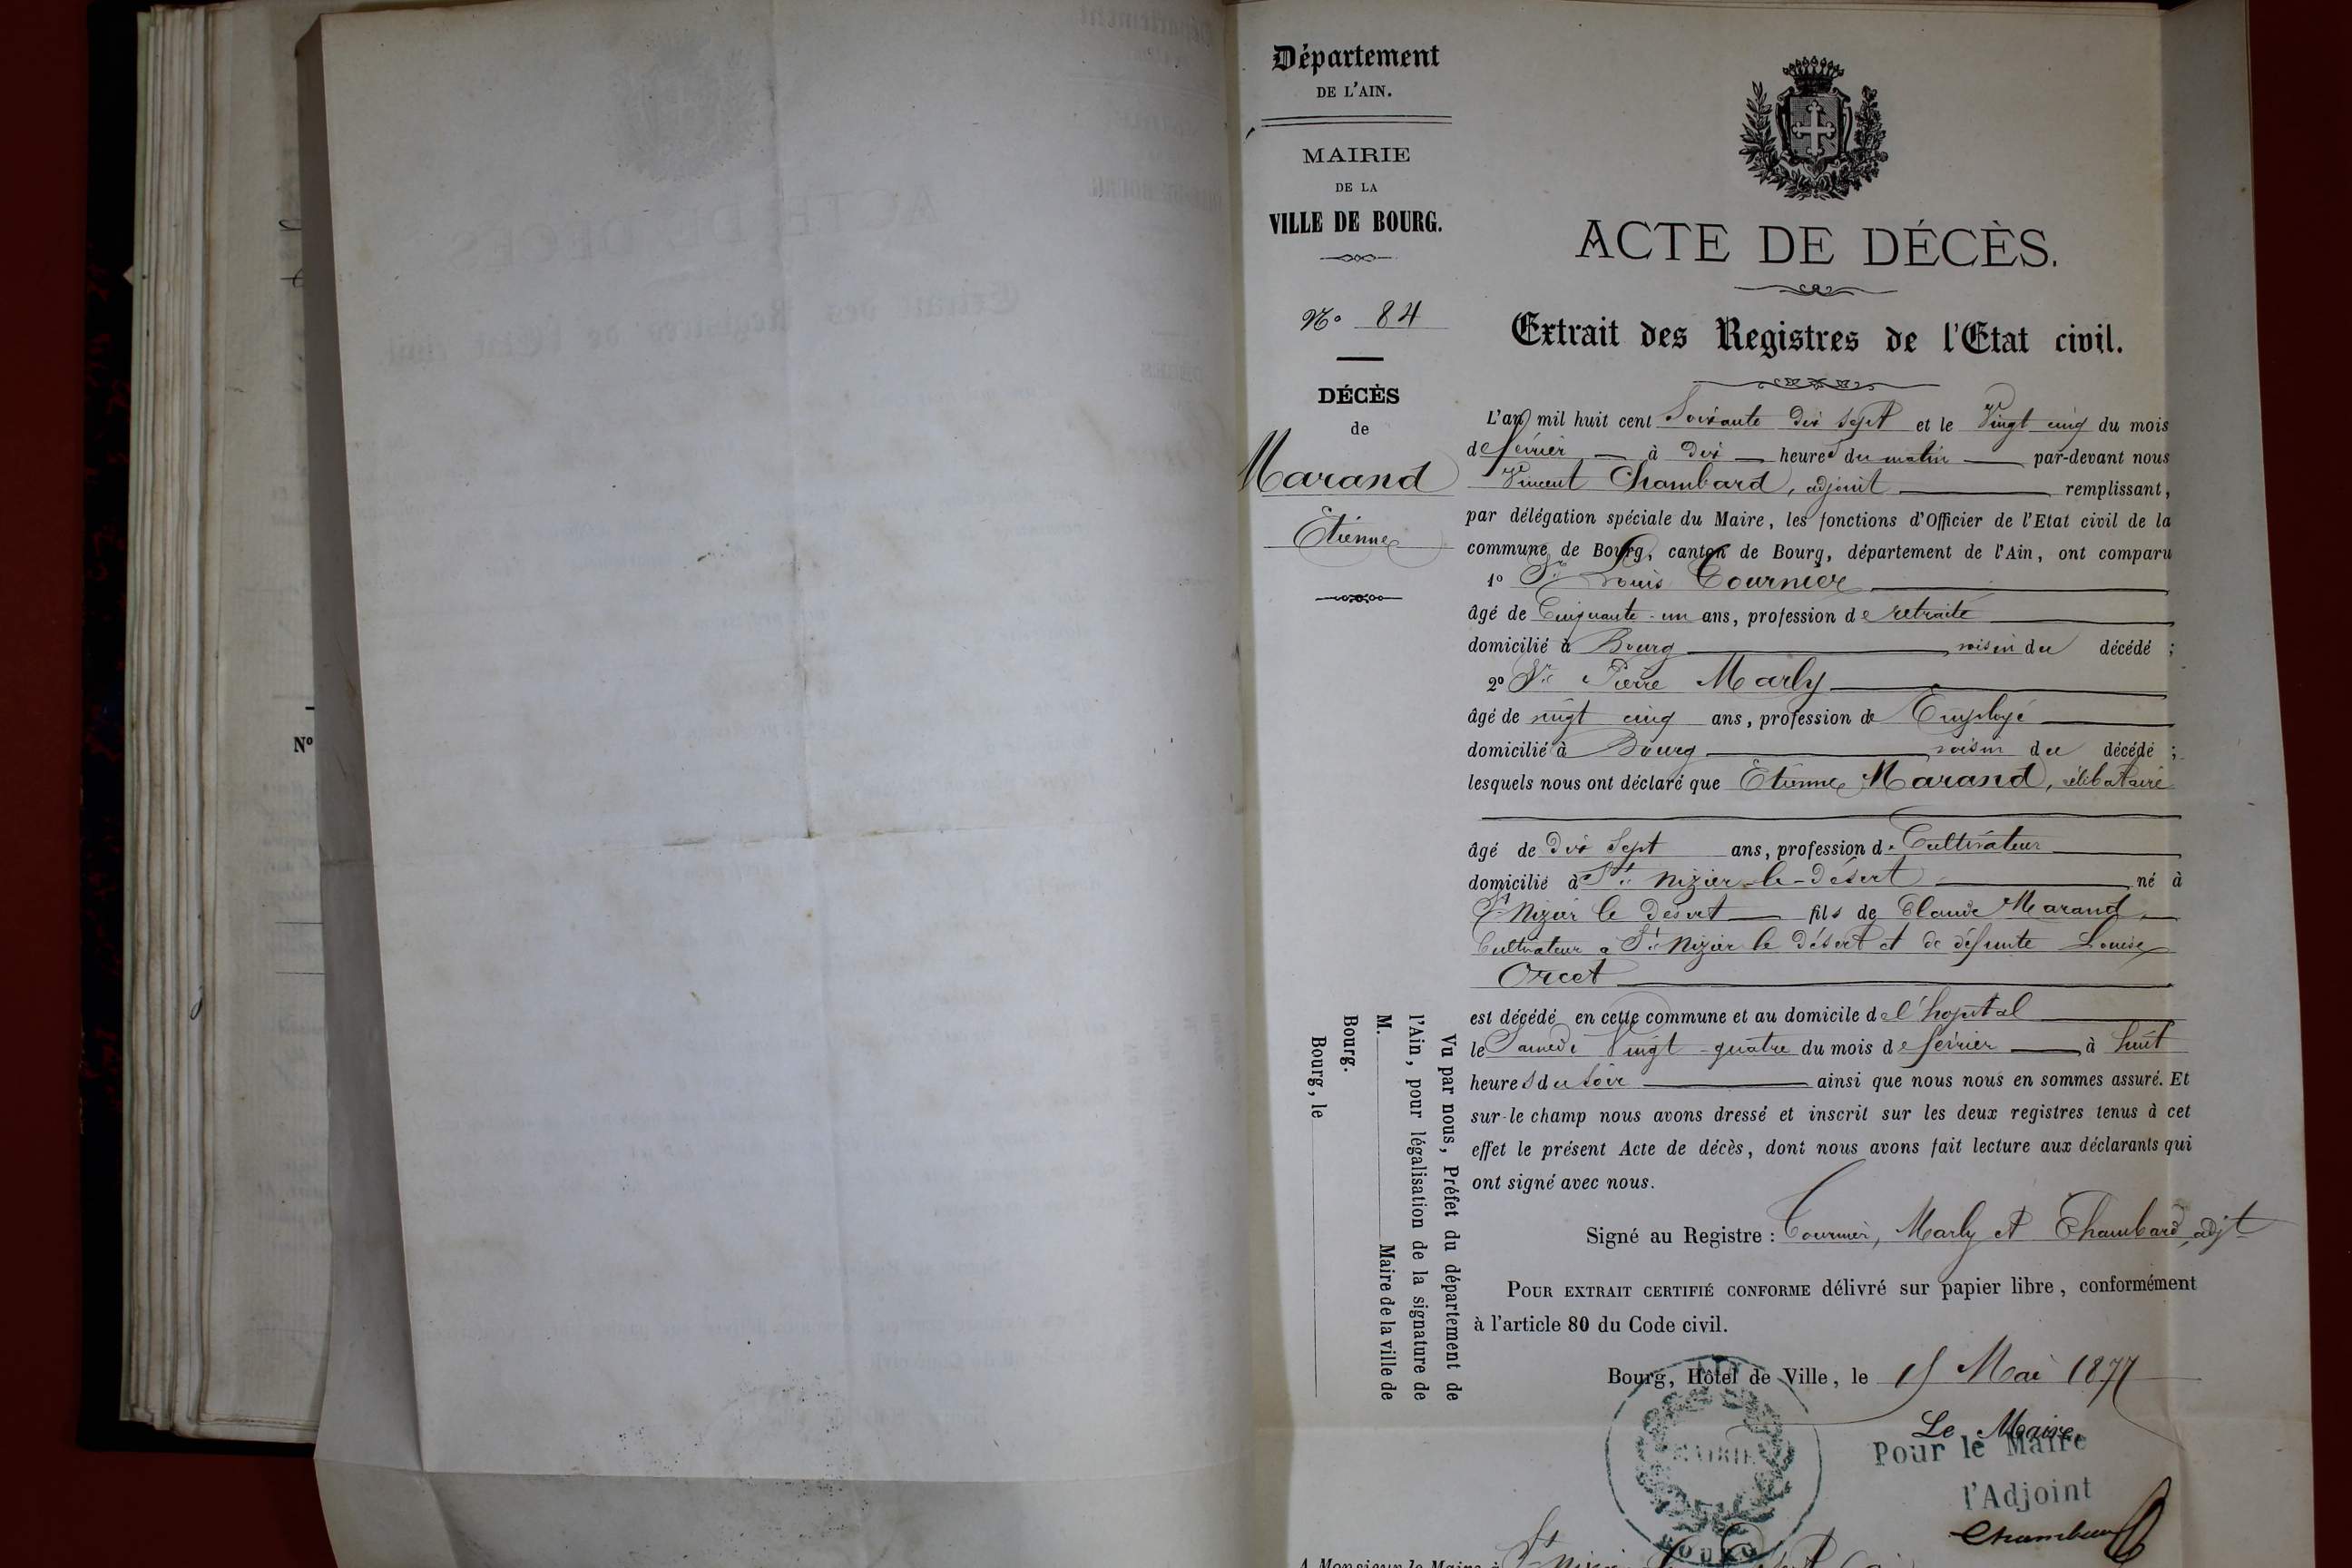 Nº
Département
DE L'AIN.
MAIRIE
DE LA
VILLE DE BOURG.
Nº 84
DÉCÈS
de
Marand
Etienne
Vu par nous, Préfet du département de
l'Ain, pour légalisation de la signature de
M. Maire de la ville de
Bourg.
Bourg, le
ACTE DE DÉCÈS.
Extrait des Registres de l'Etat civil.
L'an mil huit cent Soixante Dix Sept et le Vingt cinq du mois
de février à Dix heures du matin par-devant nous
Vincent Chambard, adjoint remplissant,
par délégation spéciale du Maire, les fonctions d'Officier de l'Etat civil de la
commune de Bourg, canton de Bourg, département de l'Ain, ont comparu
1º Sr Louis Tournier
âgé de Cinquante-un ans, profession de retraité
domicilié à Bourg voisin du décédé ;
2º Sr Pierre Marly
âgé de vingt cinq ans, profession de Employé
domicilié à Bourg voisin du décédé ;
lesquels nous ont déclaré que Etienne Marand, célibataire
âgé de Dix Sept ans, profession de Cultivateur
domicilié à St Nizier-le-Désert né à
St Nizier le Désert fils de Claude Marand
Cultivateur à St Nizier le désert et de défunte Louise
Orcet
est décédé en cette commune et au domicile de l'hopital
le Samedi Vingt-quatre du mois de février à huit
heures du soir ainsi que nous nous en sommes assuré. Et
sur-le champ nous avons dressé et inscrit sur les deux registres tenus à cet
effet le présent Acte de décès, dont nous avons fait lecture aux déclarants qui
ont signé avec nous.
Signé au Registre : Tournier, Marly et Chambard, adjt
POUR EXTRAIT CERTIFIÉ CONFORME délivré sur papier libre, conformément
à l'article 80 du Code civil.
Bourg, Hôtel de Ville, le 15 Mai 1877
Le Maire,
Pour le Maire
l'Adjoint
Chambard
MAIRIE
BOURG
A Monsieur le Maire à St Nizier le Désert